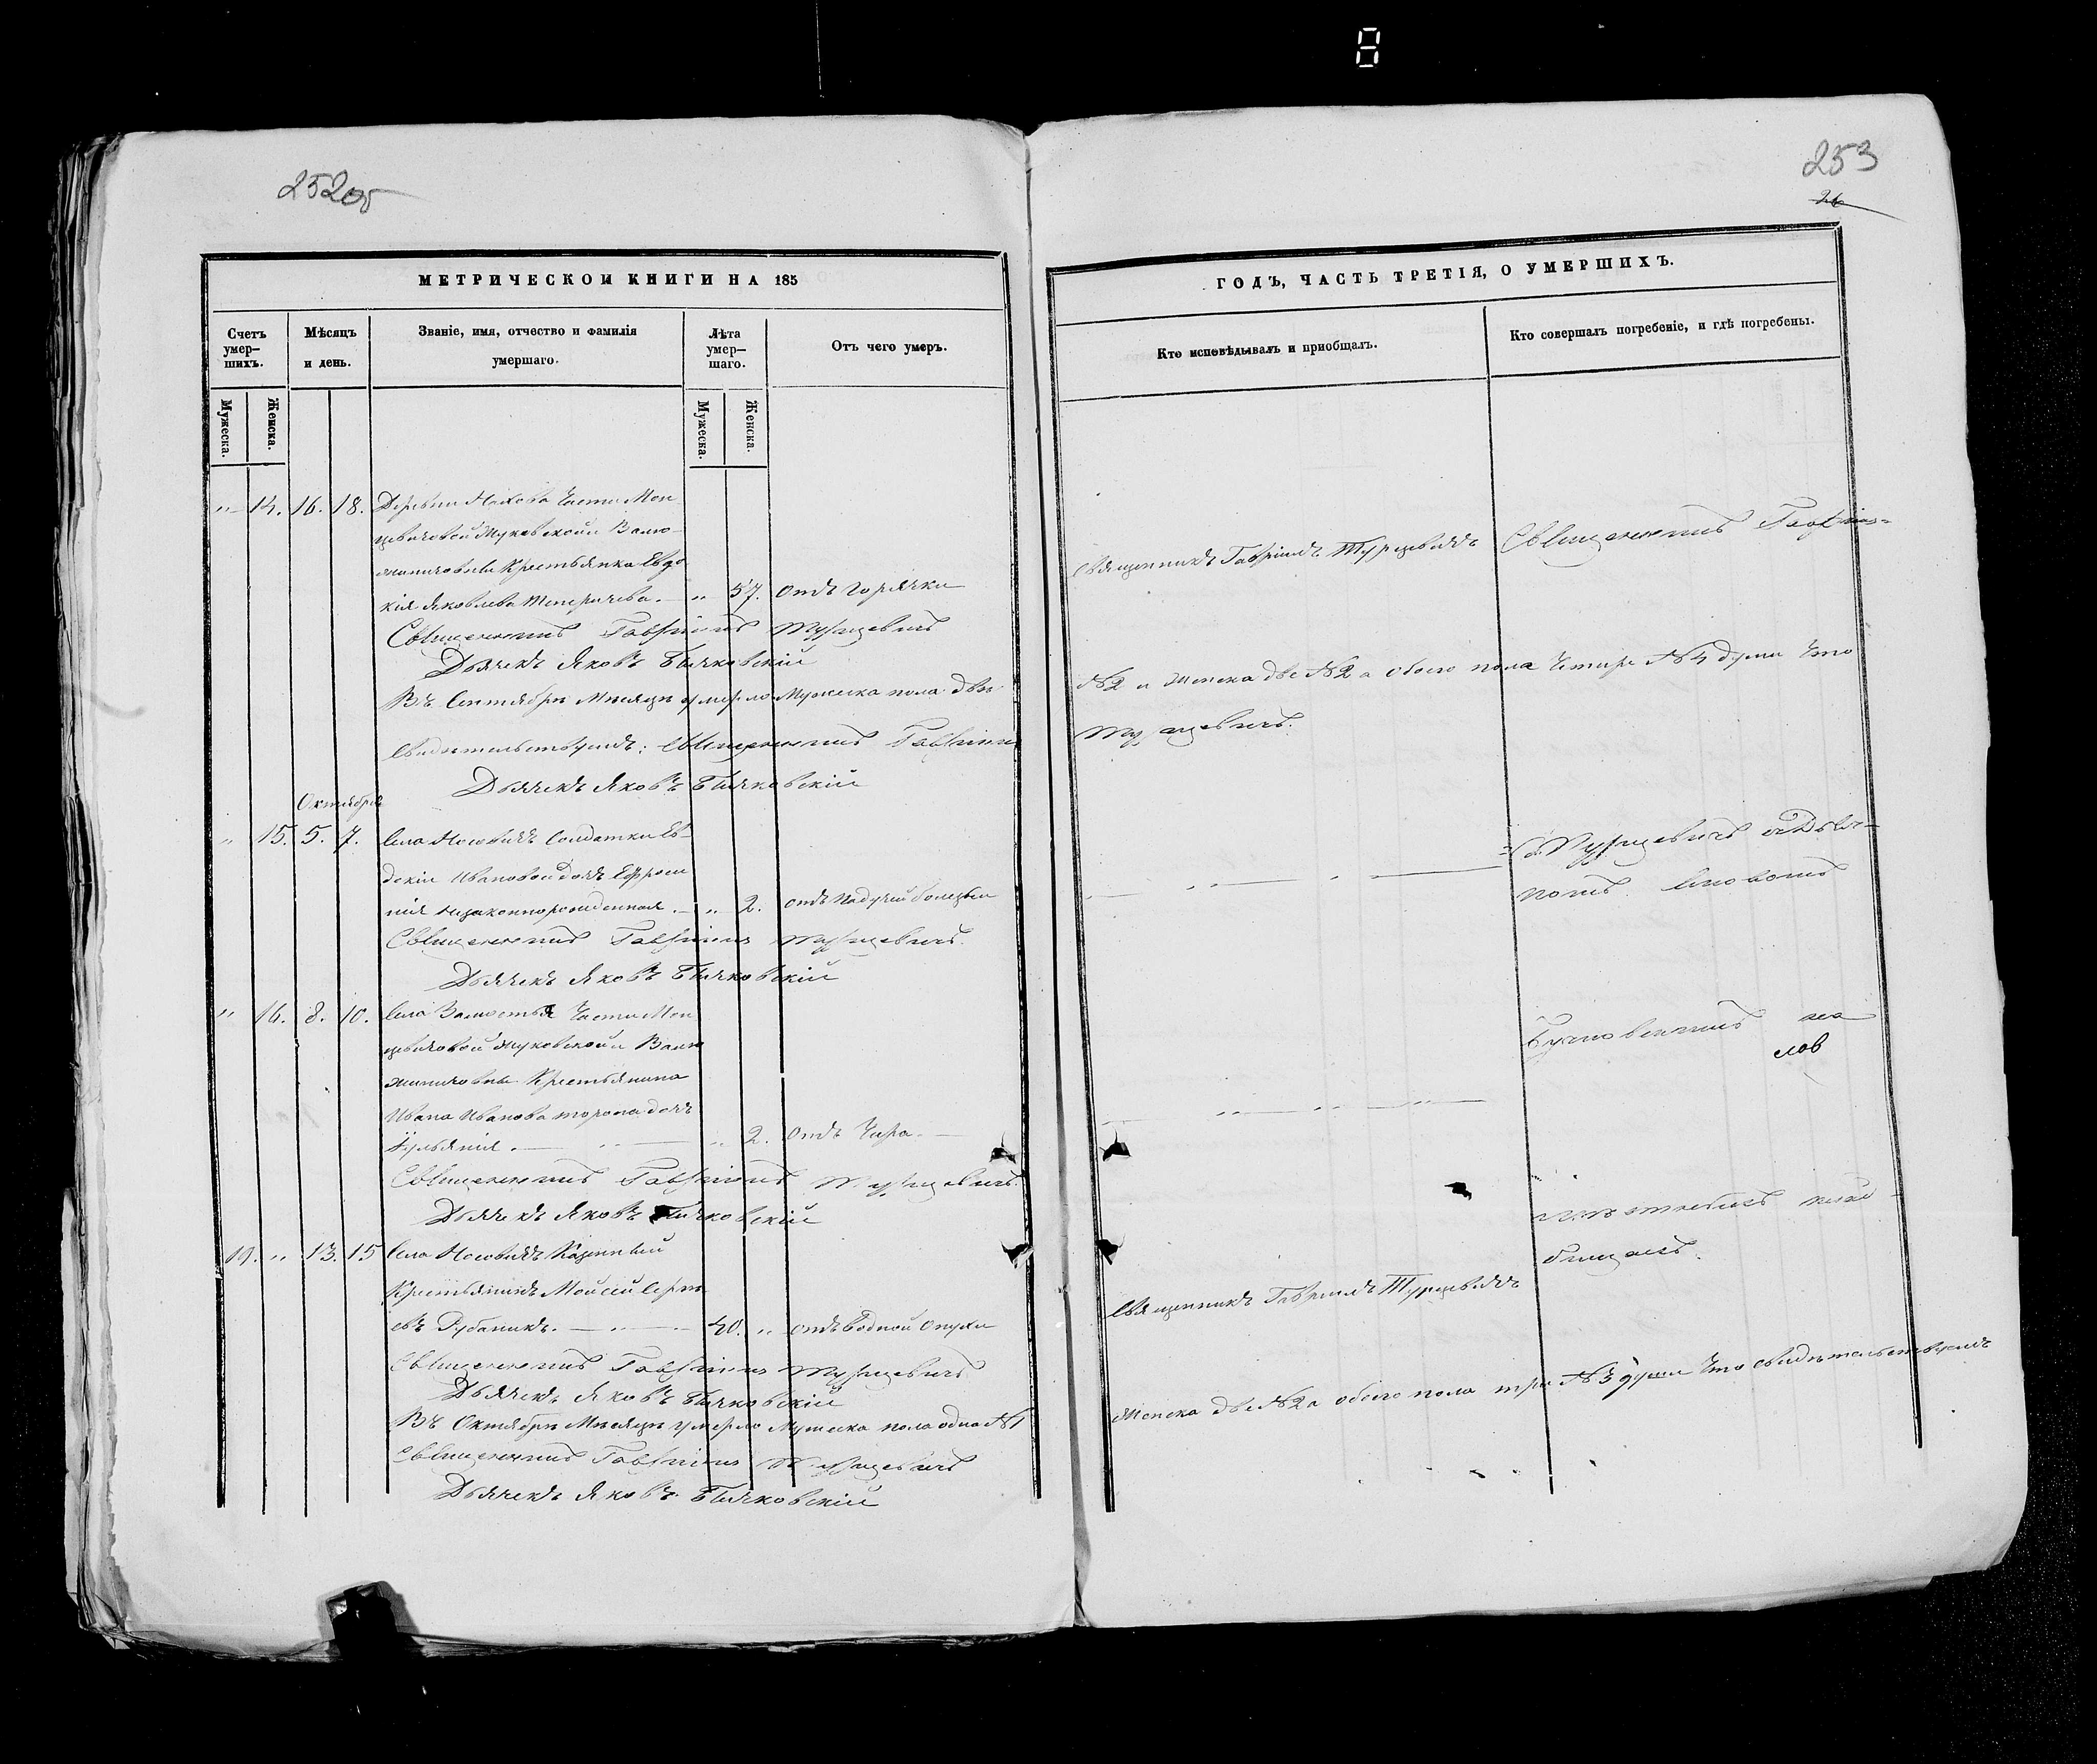 252об
МЕТРИЧЕСКОЙ КНИГИ НА 185
Счетъ умер-шихъ.
Мѣсяцъ и день.
Званіе, имя, отчество и фамилія умершаго.
Лѣта умер-шаго.
Отъ чего умеръ.
Мужеска.
Женска.
Мужеска.
Женска.
„ 14. 16. 18. Деревни Части Мон
цевичовой Жуковской и Валю
жиничовны Крестьянка Евдо
кія Яковлева „ 57. отъ Горячки
Священникъ Гавріилъ Турцевичъ
Дьячекъ Яковъ Бычковскій
Въ Сентябрѣ Мѣсяцѣ умерло Мужеска пола двѣ
свидѣтельствуемъ: Священникъ Гавріилъ
Дьячекъ Яковъ Бычковскій
Октября
„ 15. 5. 7. Села Носовичъ Солдатки Ев
докіи Ивановой дочь Ефроси
нія незаконнорожденная. „ 2. отъ Падучей болезни
Священникъ Гавріилъ Турцевичъ.
Дьячекъ Яковъ Бычковскій
„ 16. 8. 10. Села Замостья Части Мон
цевичовой Жуковской и Валю
жиничовны Крестьянина
Ивана Иванова дочь
Ѵульянія. „ 2. отъ
Священникъ Гавріилъ Турцевичъ.
Дьячекъ Яковъ Бычковскій
10. „ 13. 15 Села Носовичъ Казенный
Крестьянинъ Моисей Сергѣ
евъ Рубаникъ. 40. „ отъ Водной Опухи
Священникъ Гавріилъ Турцевичъ
Дьячекъ Яковъ Бычковскій
Въ Октябрѣ Мѣсяцѣ умерло Мужеска пола одна №1
Священникъ Гавріилъ Турцевичъ
Дьячекъ Яковъ Бычковскій
253
26
ГОДЪ, ЧАСТЬ ТРЕТІЯ, О УМЕРШИХЪ.
Кто исповѣдывалъ и пріобщалъ.
Кто совершалъ погребеніе, и гдѣ погребены.
Священникъ Гавріилъ Турцевичъ
Священникъ Гавріилъ
№2 и Женска две №2 а обоего пола четыре №4 души Что
Турцевичъ.
Турцевичъ съ Дьяч
комъ Яковомъ
Бычковскимъ на
Священникъ Гавріилъ Турцевичъ
клад
бищахъ.
Женска две №2 а обоего пола три №3 души Что свидѣтельствуемъ